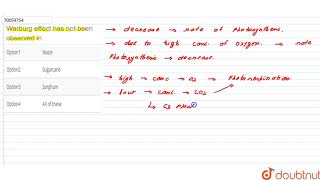 70059754
Warburg effect has not been
observed in
Option1 Maize
Option2 Sugarcane
Option3 Sorghum
Option4 All of these
→ decrease → rate of Photosynthesis.
→ due to high conc. of oxygen. → rate
Photosynthesis → decrease.
→ high → conc → O2 → Photorespiration
→ low → conc. → CO2
↳ C3 Plan
doubtnut